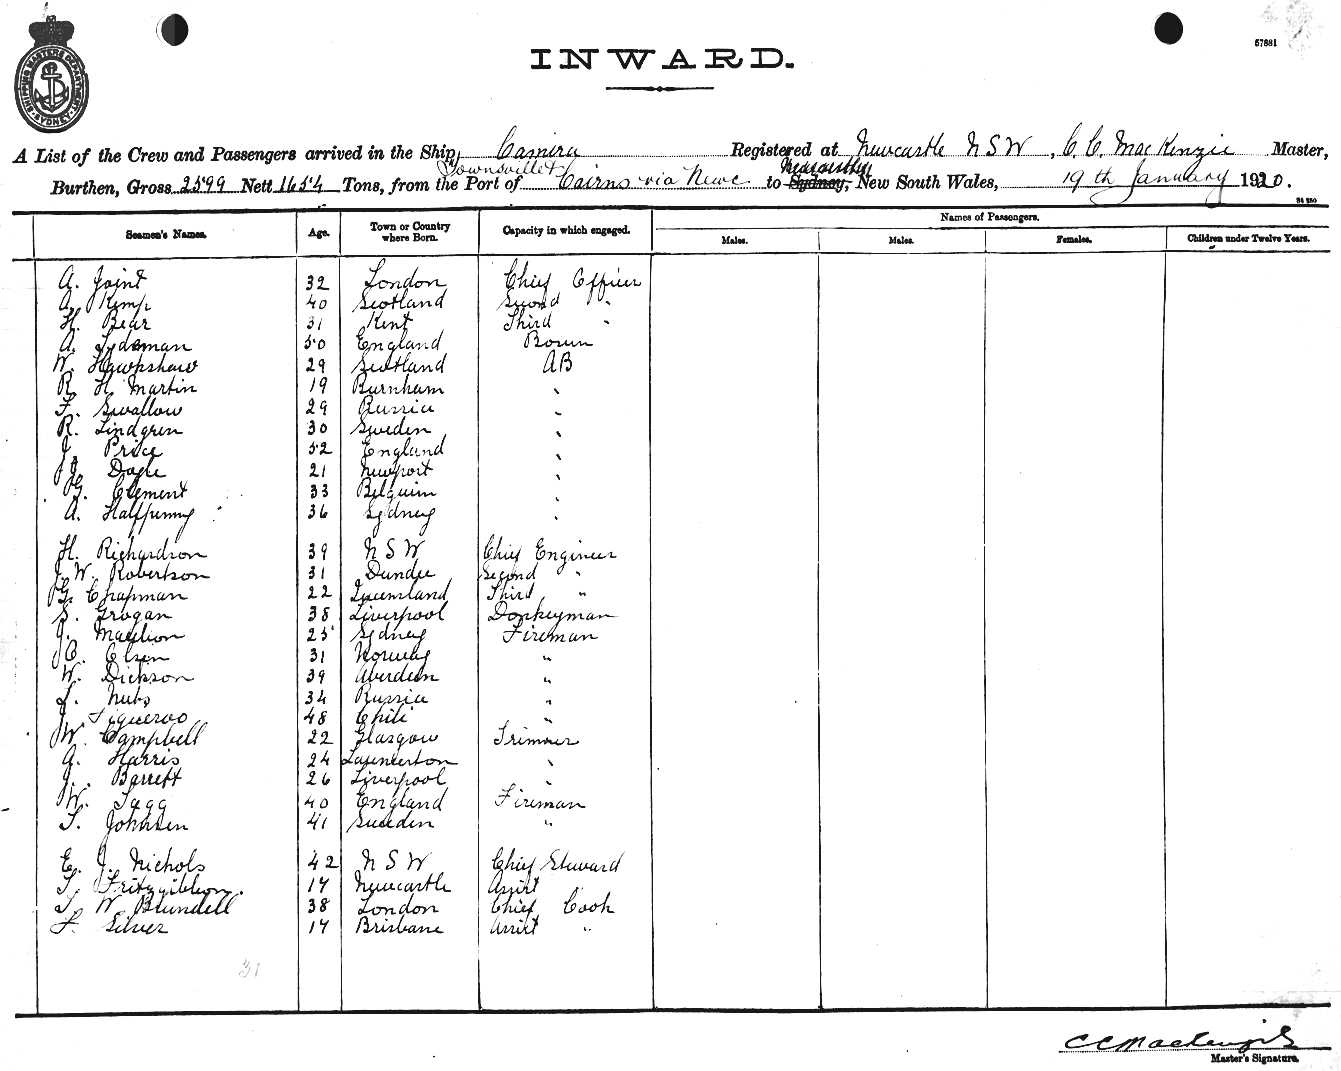 SHIPPING MASTERS DEPARTMENT SYDNEY
57881
INWARD.
A List of the Crew and Passengers arrived in the Ship, Camira Registered at Newcastle NSW, C. C. MacKenzie Master,
Townsville &
Burthen, Gross 2599 Nett 1654 Tons, from the Port of Cairns via Newc to Sydney, Newcastle, New South Wales, 19th January 1920.
Seamen's Names. Age. Town or Country where Born. Capacity in which engaged. Names of Passengers.
Males. Males. Females. Children under Twelve Years.
A. Joint 32 London Chief Officer
A. Kemp 40 Scotland Second "
H. Bear 31 Kent Third "
A. Sydeman 50 England Bosun
W. Hawkshaw 29 Scotland AB
R. H. Martin 19 Burnham "
F. Swallow 29 Russia "
R. Lindgren 30 Sweden "
J. Price 52 England "
J. 21 Newport "
G. Clement 33 Belguim "
A. Halfpenny 36 Sydney "
H. Richardson 39 NSW Chief Engineer
J. W. Robertson 31 Dundee Second "
G. Chapman 22 Queensland Third "
S. Grogan 38 Liverpool Donkeyman
J. 25 Sydney Fireman
C. Olsen 31 Norway "
W. Dickson 39 Aberdeen "
J. 34 Russia "
J. Figueroo 48 Chili "
W. Campbell 22 Glasgow Trimmer
A. Harris 24 "
J. Barrett 26 Liverpool "
W. Tagg 40 England Fireman
T. Johnsen 41 Sweden "
E. J. Nichols 42 NSW Chief Steward
T. Fritzgibbon. 17 Newcastle Assist
T. W. Blundell 38 London Chief Cook
F. Silver 17 Brisbane Assist "
31
CCMacKenzie
Master's Signature.